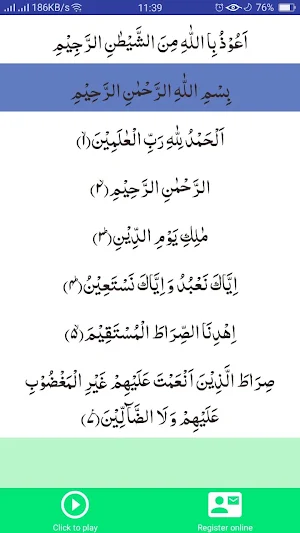 186KB/s 11:39 76%
اَعُوْذُ بِا اللّٰهِ مِنَ الشَّيْطٰنِ الرَّجِيْمِ
بِسْمِ اللّٰهِ الرَّحْمٰنِ الرَّحِيْمِ
اَلْحَمْدُ لِلّٰهِ رَبِّ الْعٰلَمِيْنَ(۱)
الرَّحْمٰنِ الرَّحِيْمِ(۲)
مٰلِكِ يَوْمِ الدِّيْنِ(۳)
اِيَّاكَ نَعْبُدُ وَ اِيَّاكَ نَسْتَعِيْنُ(۴)
اِهْدِنَا الصِّرَاطَ الْمُسْتَقِيْمَ(۵)
صِرَاطَ الَّذِيْنَ اَنْعَمْتَ عَلَيْهِمْ غَيْرِ الْمَغْضُوْبِ
عَلَيْهِمْ وَ لَا الضَّآلِّيْنَ(۷)
Click to play Register online